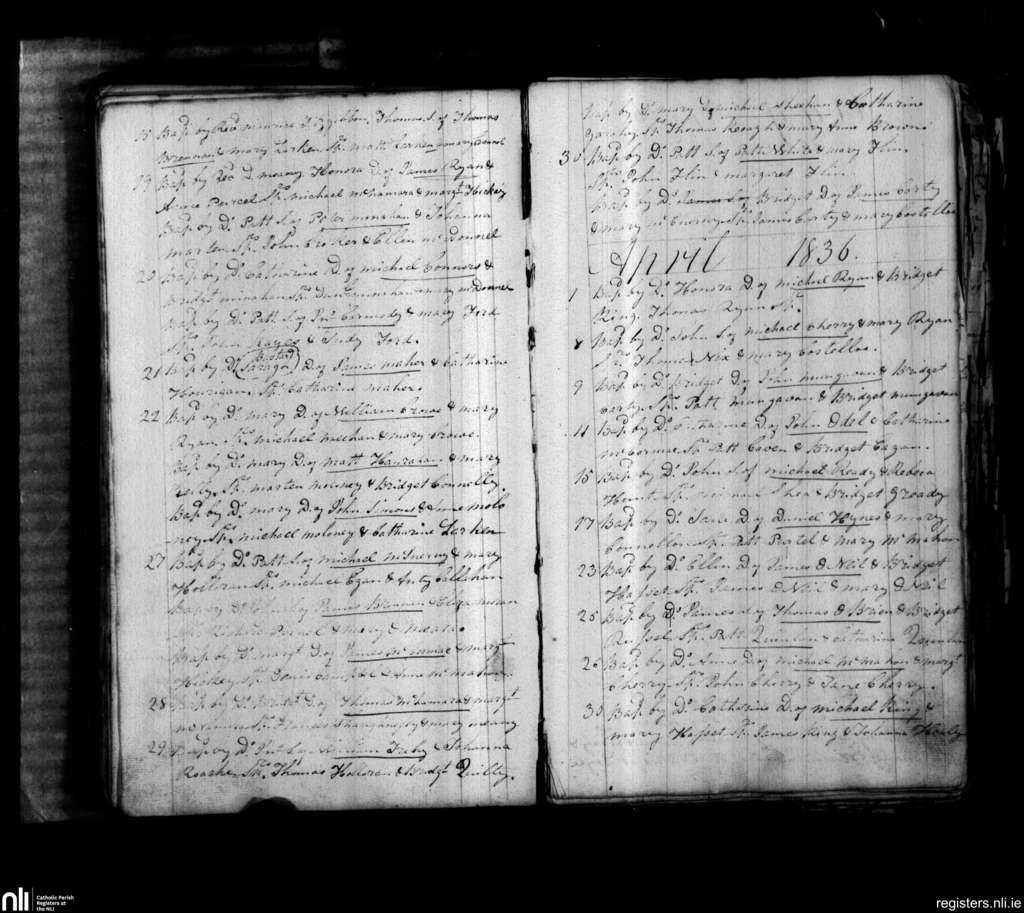 18 Bap. by Revd maurice Fizgibbon Thomas S. of Thomas
Brennan & mary Larken Sp. matt Larken & mary
19 Bap. by Revd D. meany Honora D. of James Ryan &
Anne Purcel Sp. michael mcnamara & margt. Hickey
Bap. by Do. Patt S. of Peter minahan & Johanna
marten Sp. John Croker & Ellen mc Donnel
20 Bap. by Do. Catharine D. of michael Connors &
Bridgt. minahan Sp. minahan & mary mcDonnel
Bap. by Do. Patt S. of Kennedy & mary Ford
Sp. John Hayes & Judy Ford.
21 Bap. by Do. (Bastard) Sarah D. of James maher & Catharine
Hourigan Sp. Catharine maher.
22 Bap. by Do. mary D. of William Crowe & mary
Ryan Sp. michael meehan & mary Crowe.
Bap. by Do. mary D. of matt Hanrahan & mary
Sp. marten & Bridget Connolly.
Bap. by Do. mary D. of John Simons & Anne molo
ney Sp. michael moloney & Catharine Larken
27 Bap. by Do. Patt S. of michael mcInerny & mary
Holloran Sp. michael Egan & Callahan
Bap. by Do. James Brennan & Eliza
Sp. & mary
Bap. by Do. margt. D. of James mcCormac & margt
Hickey Sp. Denis & Anne mcmahon
28 Bap. by Do. Bridgt. D. of Thomas mcnamara & margt
Sp. Francis Shaughnessy & mary meany
29 Bap. by Do. S. of William & Johanna
Roarke Sp. Thomas Holloran & Bridgt. Quilty.
Bap. by Do. mary D. of michael Sheehan & Catharine
Sp. Thomas Keough & mary Anne Browne
30 Bap. by Do. Patt S. of Patt White & mary Flin
Sp. John Flin & margaret Flin
Bap. by Do. Bridget D. of James Corty
& mary mcEnerny Sp. James Corty & mary Costelloe
April 1836.
1 Bap. by Do. Honora D. of michael Ryan & Bridget
King. Thomas Ryan Sp.
8 Bap. by Do. John S. of michael Cherry & mary Ryan
Sp. Thomas Nix & mary Costelloe.
9 Bap. by Do. Bridget D. of John mungavan & Bridget
Sp. Patt mungavan & Bridget mungavan
11 Bap. by Do. D. of John Odel & Catharine
mcCormac Sp. Patt Coven & Bridget Eagan.
15 Bap. by Do. John S. of michael Ready & Rebeca
Hunt Sp. Shea & Bridget Gready
17 Bap. by Do. Jane D. of Daniel Hynes & mary
Connollon Sp. Patt Pertel & mary mcmahon
23 Bap. by Do. Ellen D. of James O Neil & Bridget
Hasset Sp. James O Neil & mary O Neil
25 Bap. by Do. James S. of Thomas O Brien & Bridget
Russel Sp. Patt Quinlan & Catharine Quinlan
26 Bap. by Do. Anne D. of michael mcmahon & margt.
Cherry Sp. John Cherry & Jane Cherry.
30 Bap. by Do. Catharine D. of michael King &
mary Hasset Sp. James King & Johanna Healy
nli Catholic Parish
Registers at
the NLI
registers.nli.ie